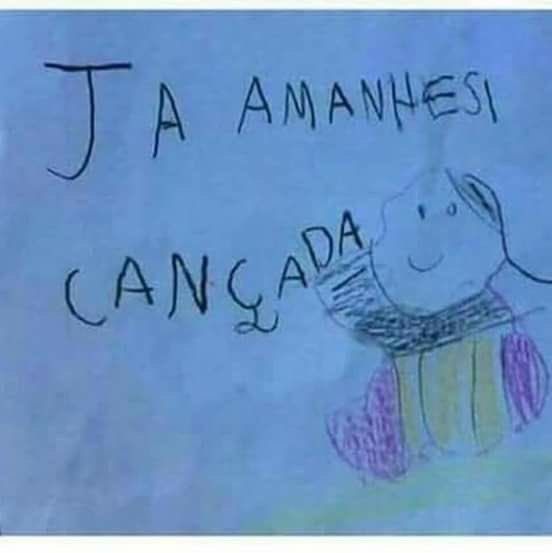 JA AMANHESI
CANÇADA